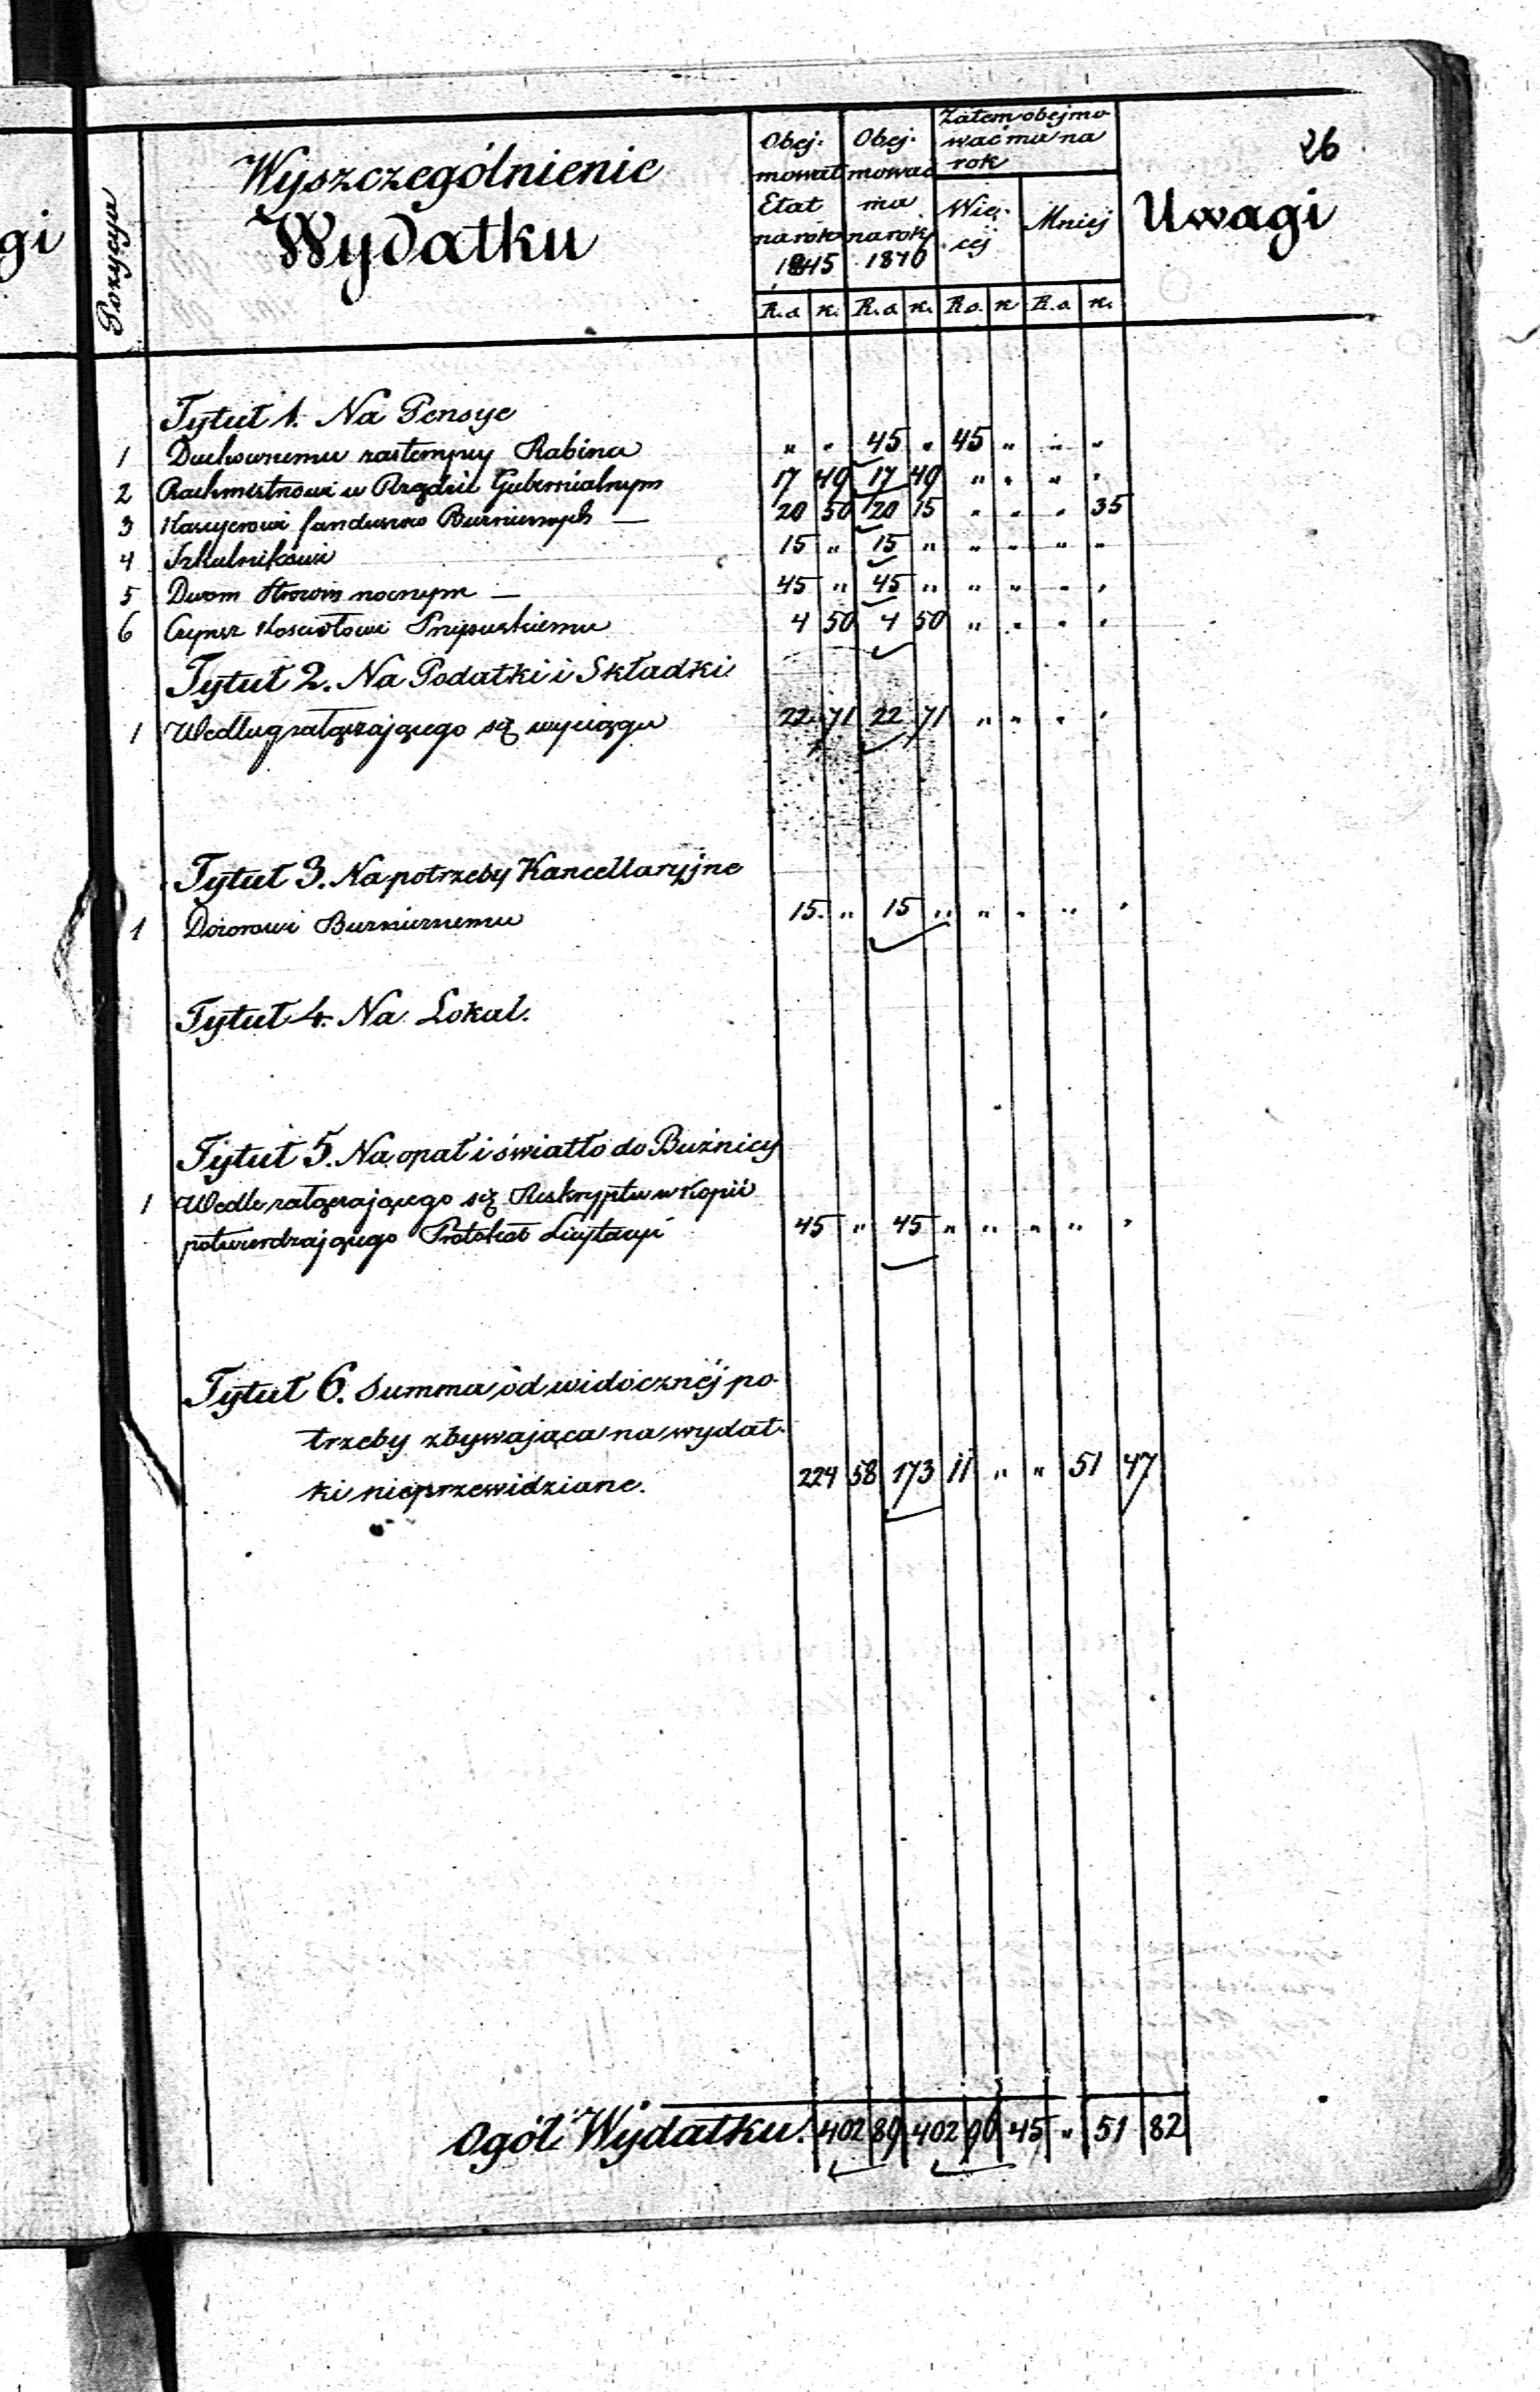 gi
26
Pozycya
Wyszczególnienie
Wydatku
Obej-
mował
Etat
na rok
1845
Obej-
mować
ma
na rok
1870
Zatem obejmo
wać ma na
rok
Wię-
cej
Mniej
Uwagi
R.s. k. R.s. k. R.s. k R.s. k.
Tytuł 1. Na Pensye
1 Duchownemu zastempcy Rabina " " 45 " 45 " " "
2 Rachmistrzowi w Rządzie Gubernialnym 17 49 17 49 " " " "
3 Kassyerowi funduszów Bużnicznych — 20 50 20 15 " " " 35
4 Szkulnikowi 15 " 15 " " " " "
5 Dwom Stróżom nocnym — 45 " 45 " " " " "
6 Czynsz Kościołowi 4 50 4 50 " " " "
Tytuł 2. Na Podatki i Składki
1 Według załączającego się wyciągu 22 71 22 71 " " " "
Tytuł 3. Na potrzeby Kancellaryjne
1 Dozorowi Bużnicznemu 15. " 15 " " " " "
Tytuł 4. Na Lokal.
Tytuł 5. Na opał i światło do Bużnicy
1 Wedle załączającego się Reskryptu w Kopii
potwierdzającego Protokół Licytacyi 45 " 45 " " " " "
Tytuł 6. Summa od widocznéj po-
trzeby zbywająca na wydat-
ki nieprzewidziane. 224 58 173 11 " " 51 47
Ogół Wydatku. 402 89 402 90 45 " 51 82